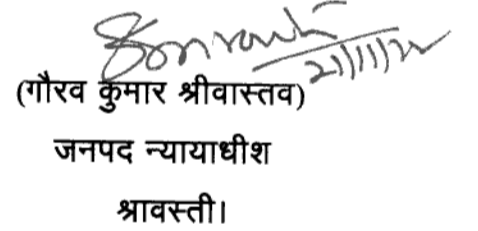 21/11/22
(गौरव कुमार श्रीवास्तव)
जनपद न्यायाधीश
श्रावस्ती।